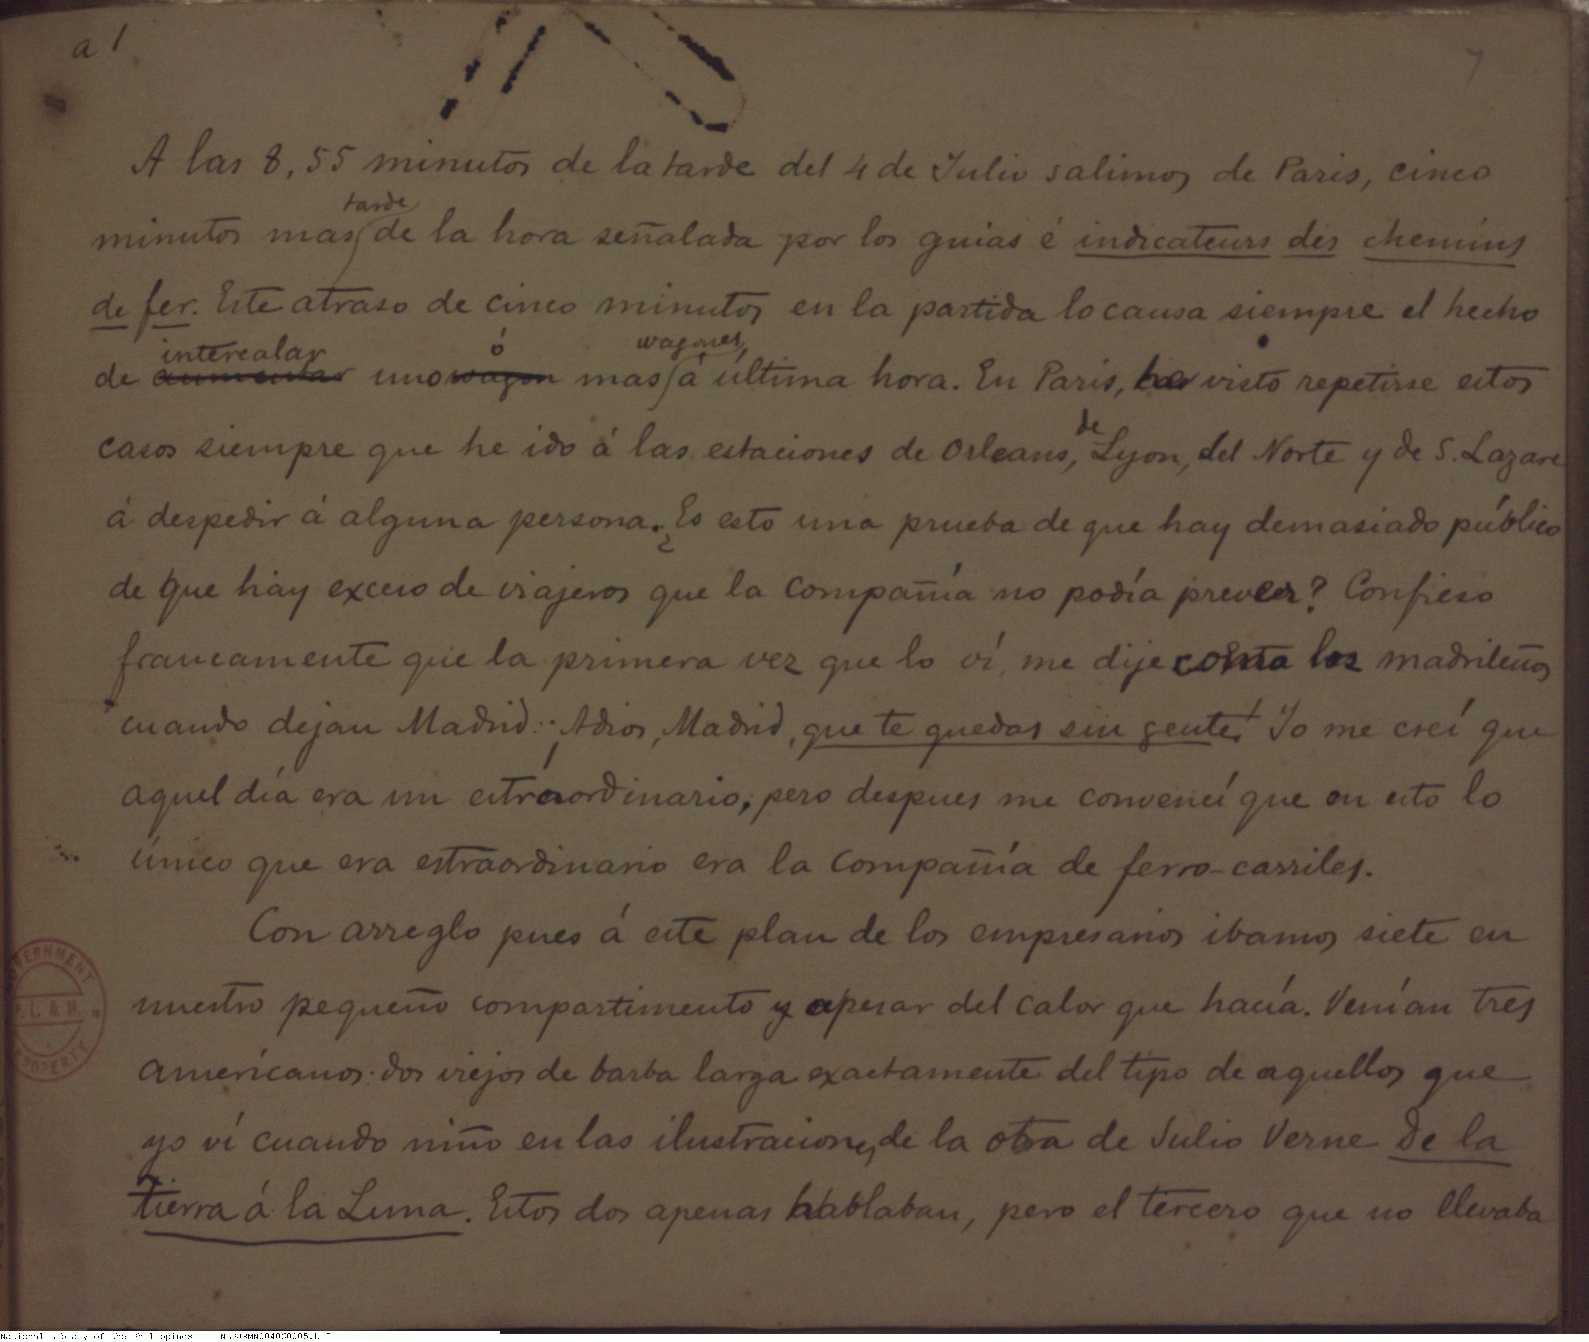 a 1
7
A las 8,55 minutos de la tarde del 4 de Julio salimos de Paris, cinco
minutos mas tarde de la hora señalada por los guias é indicateurs des chemins
de fer. Este atraso de cinco minutos en la partida lo causa siempre el hecho
de aumentar intercalar uno wagon ó mas wagones á última hora. En Paris, he visto repetirse estos
casos siempre que he ido á las estaciones de Orleans, de Lyon, del Norte y de S. Lazare
á despedir á alguna persona. ¿Es esto una prueba de que hay demasiado público
de que hay exceso de viajeros que la compañía no podía preveer? Confieso
francamente que la primera vez que lo ví, me dije como los madrileños
cuando dejan Madrid: ¡Adios, Madrid, que te quedas sin gente! Yo me creí que
aquel día era un estraordinario; pero despues me convencí que en esto lo
único que era estraordinario era la compañía de ferro-carriles.
Con arreglo pues á este plan de los empresarios ibamos siete en
nuestro pequeño compartimento y apesar del calor que hacía. Venían tres
americanos: dos viejos de barba larga exactamente del tipo de aquellos que
yo ví cuando niño en las ilustraciones de la obra de Julio Verne De la
tierra á la Luna. Estos dos apenas hablaban, pero el tercero que no llevaba
GOVERNMENT
P. L. & M.
PROPERTY
National Library of the Philippines